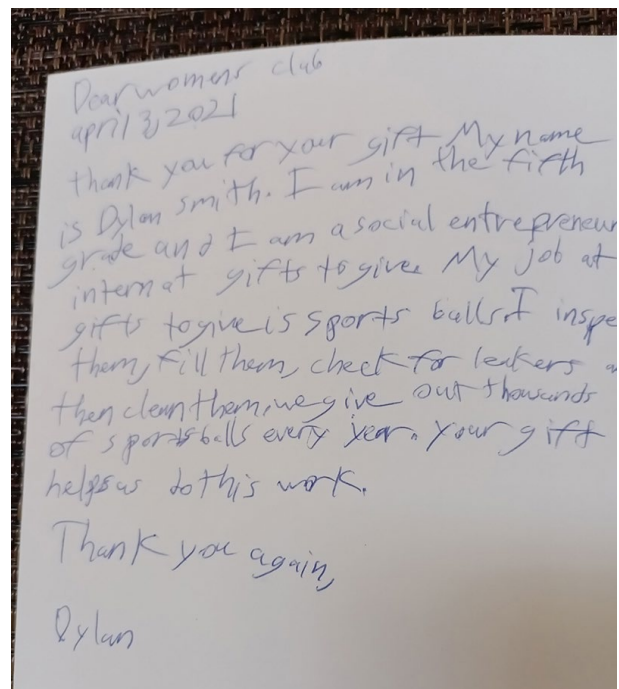 Dear womens club
april 3, 2021
thank you for your gift My name
is Dylan smith. I am in the fifth
grade and I am a social entrepreneur
intern at gifts to give. My job at
gifts to give is sports balls. I inspe
them, fill them, check for leakers a
then clean them, we give out thousands
of sports balls every year. your gift
helps us do this work.
Thank you again,
Dylan